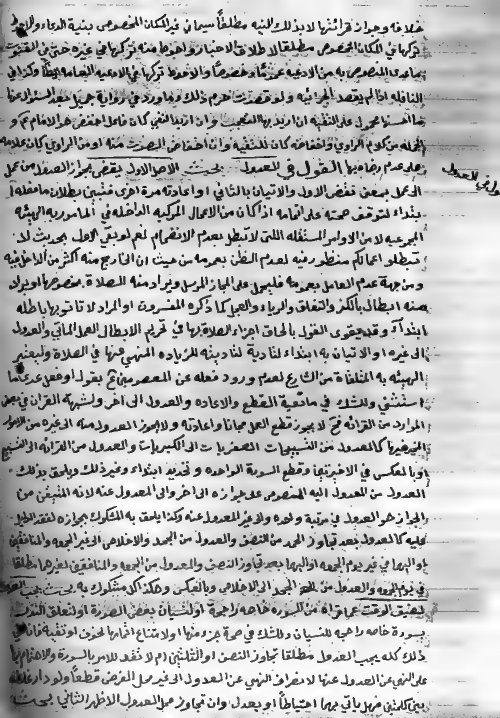 خلافه وجواز قرائتها لا بذلك النيه مطلقا سيما في غير المكان المخصوص بنية الدعاء والاحوط
تركها في المكان المخصوص مطلقا لاطلاق الاخبار واحوط منه تركها في غيره حتى في القنوت
المنصوص به من الادعيه عموما وخصوصا والاحوط تركها في الادعيه العامه ايضا وكذا في
النافله اذا لم يقصد الجزئيه ولو قصدت حرم ذلك وما ورد في رواية جميل بعد السؤال عنها
محمول على التقيه ان اريد بها
من كلام الراوي واخفاضه كان للتقيه وان اخفاض الصوت منه او من الراوي كان علامه
على عدم رضاه بها القول في العدول بحيث الاصل الاول يقتضي بجواز العدول من عمل
الى عمل بمعنى نقض الاول والاتيان بالثاني او اعادته مرة اخرى فتبين بطلان ما فعله
ابتداء لتوقف صحته على اتمامه اذا كان من الاعمال المركبه الداخله في المامور به الهيئه
المجموعيه لا من الاوامر المستقله اللتى لا تبطل بعدم الانضمام نعم لو بقي الاول بحديث لا
تبطلوا اعمالكم منظور فيه لعدم الظن بعمومه من حيث ان الخارج منه اكثر من الداخل فيه
ومن جهة عدم العامل بعمومه فليحمل على المجاز المرسل ويراد منه الصلاة بخصوصها او يراد
منه الابطال بالكفر والنفاق والرياء والعجب كما ذكره المفسرون او المراد لا تاتوا بها باطله
ابتداء وقد يقوى القول بالحاق اجزاء الصلاة بها في تحريم الابطال العمل الماتي والعدول
الى غيره او الاتيان به ابتداء لتادية لتاديته للزياده المنهي عنها في الصلاة ولتغيير
الهيئه به المتلقاة من الشارع لعدم ورود فعله عن المعصومين ثم بقول او فعل عدا ما
استثني وللشك في ماهية القطع والاعاده والعدول الى اخر ولشبهة القران في بعض
الموارد من القرائه فح لا يجوز قطع العمل مجانا واعادته ولا يجوز العدول منه الى غيره من الامور
المخير فيها كالعدول من التسبيحات الصغريات الى الكبريات والعدول من القرائه الى التسبيح
او بالعكس في الاخيرتين وقطع السورة الواحده وتجديد ابتداء وغير ذلك ويلحق بذلك
العدول من المعدول اليه المنصوص على جوازه الى اخر والى المعدول عنه لانه المتيقن من
الجواز هو العدول في مرتبة واحده ولا غير المعدول عنه وكذا يلحق به المشكوك بجوازه لفقد الدليل
عليه كالعدول بعد تجاوز الحد من النصف والعدول من الجحد والاخلاص الى غير الجمعه والمنافقين
او اليهما في غير يوم الجمعه او اليهما بعد تجاوز النصف والعدول من الجمعه والمنافقين لغيرهما مطلقا
في يوم الجمعه والعدول من الجحد الى الاخلاص وبالعكس وهكذا كل مشكوك به بحيث يجب العدول
لضيق الوقت عن قرائة من السوره خاصه راجحة او لنسيان بعض السورة او لتعلق النذر
بسورة خاصه راجحه للنسيان وللشك في صحة جزء منها او لامتناع اتمامها لخوف او تقيه فانه في
ذلك كله يجب العدول مطلقا تجاوز النصف او الثلثين ام لا تقدما للامر بالسورة والاهتمام بها
على النهي عن العدول عنها لانصراف النهي عن العدول الى غير محل الفرض قطعا ولو دار
بين كلمتين فهل ياتي بهما احتياطا او يعدل وان تجاوز محل العدول الاظهر الثاني بحيث